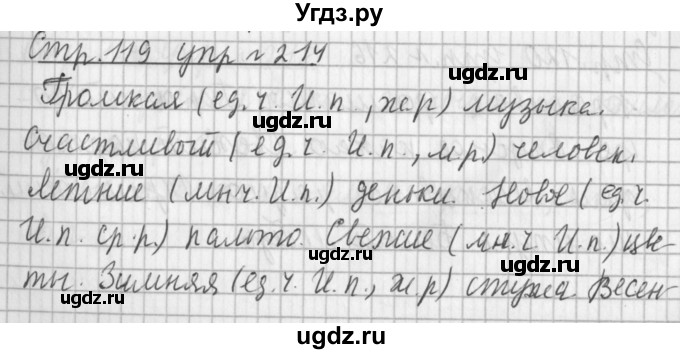 Угдз.ру
Стр. 119 упр № 214
Громкая (ед.ч. И.п., ж.р) музыка.
Счастливый (ед.ч. И.п., м.р) человек.
Летние (мн.ч. И.п.) деньки. Новое (ед.ч.
И.п. ср.р) пальто. Свежие (мн.ч. И.п.) цве-
ты. Зимняя (ед.ч. И.п., ж.р) стужа. Весен-
ugdz.ru
ugdz.ru
ugdz.ru
ugdz.ru
ugdz.ru
ugdz.ru
ugdz.ru
ugdz.ru